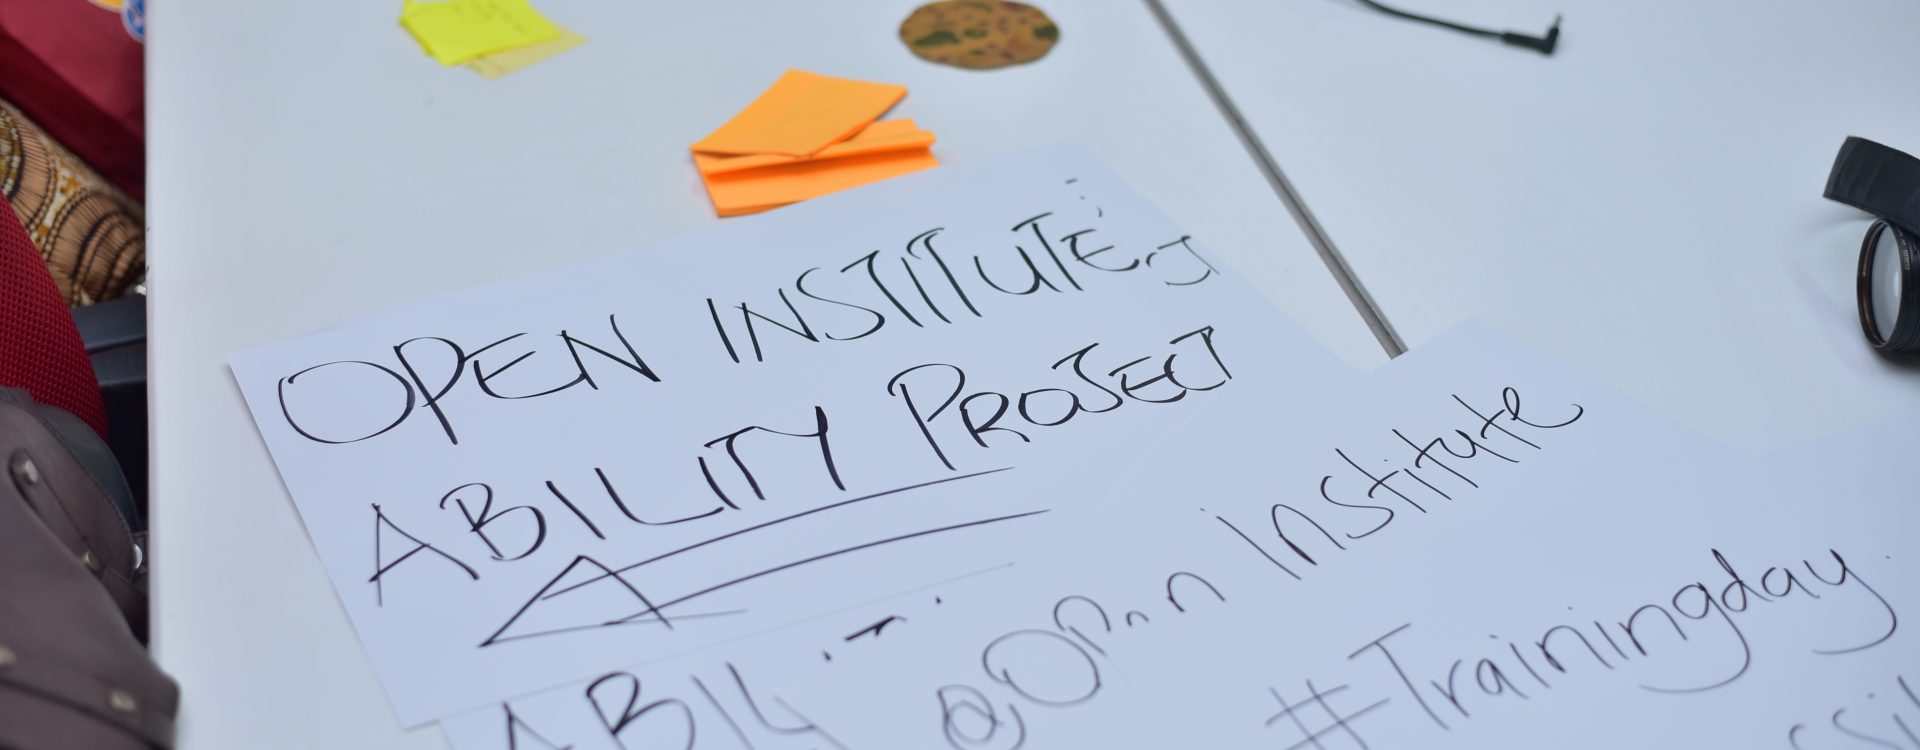 OPEN INSTITUTE
ABILITY PROJECT
@Open Institute
#Trainingday